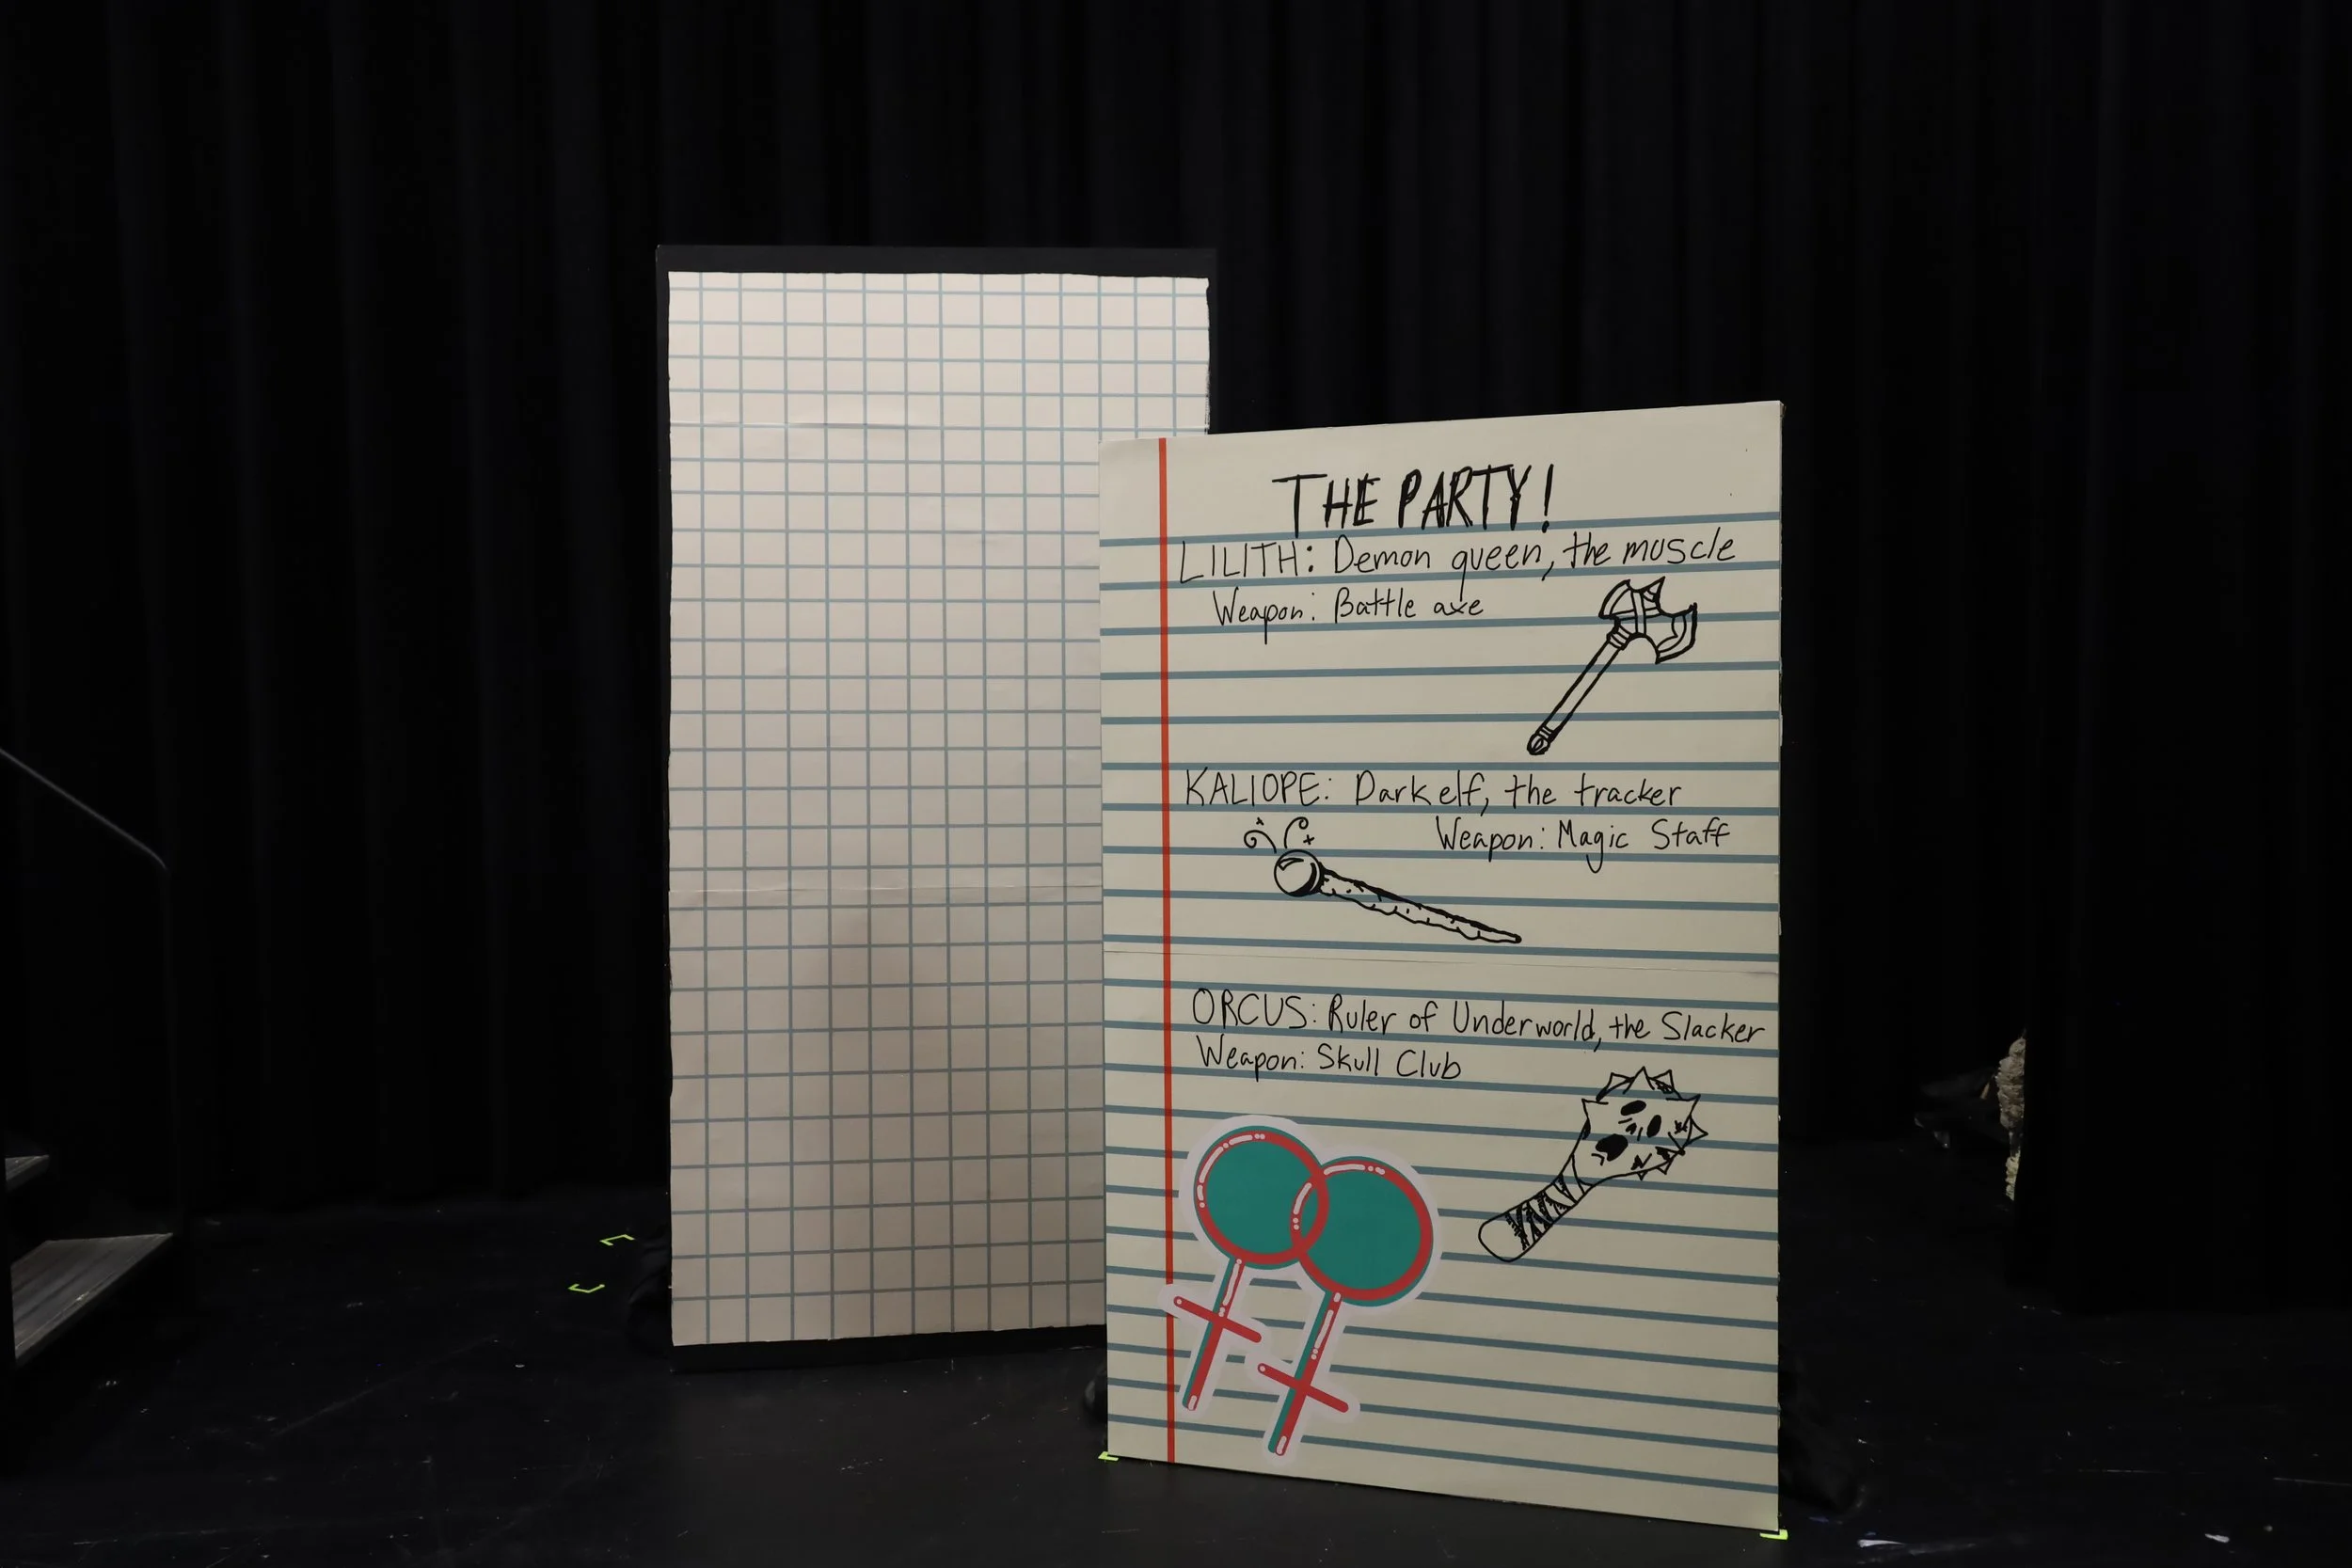 THE PARTY!
LILITH: Demon queen, the muscle
Weapon: Battle axe
KALIOPE: Dark elf, the tracker
Weapon: Magic Staff
ORCUS: Ruler of Underworld, the Slacker
Weapon: Skull Club